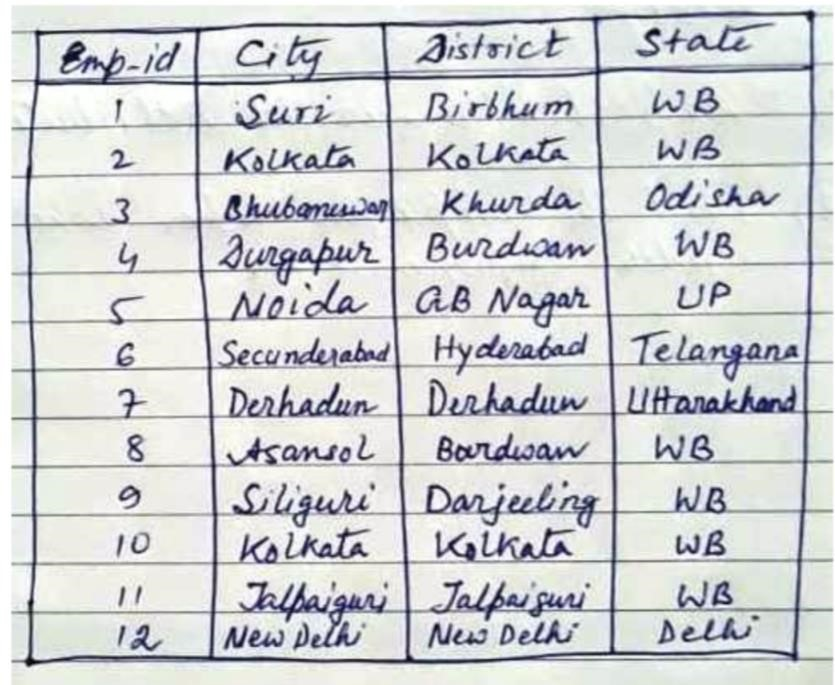 Emp-id City District State
1 Suri Birbhum WB
2 Kolkata Kolkata WB
3 Bhubaneswar Khurda Odisha
4 Durgapur Burdwan WB
5 Noida GB Nagar UP
6 Secunderabad Hyderabad Telangana
7 Derhadun Derhadun Uttarakhand
8 Asansol Burdwan WB
9 Siliguri Darjeeling WB
10 Kolkata Kolkata WB
11 Jalpaiguri Jalpaiguri WB
12 New Delhi New Delhi Delhi